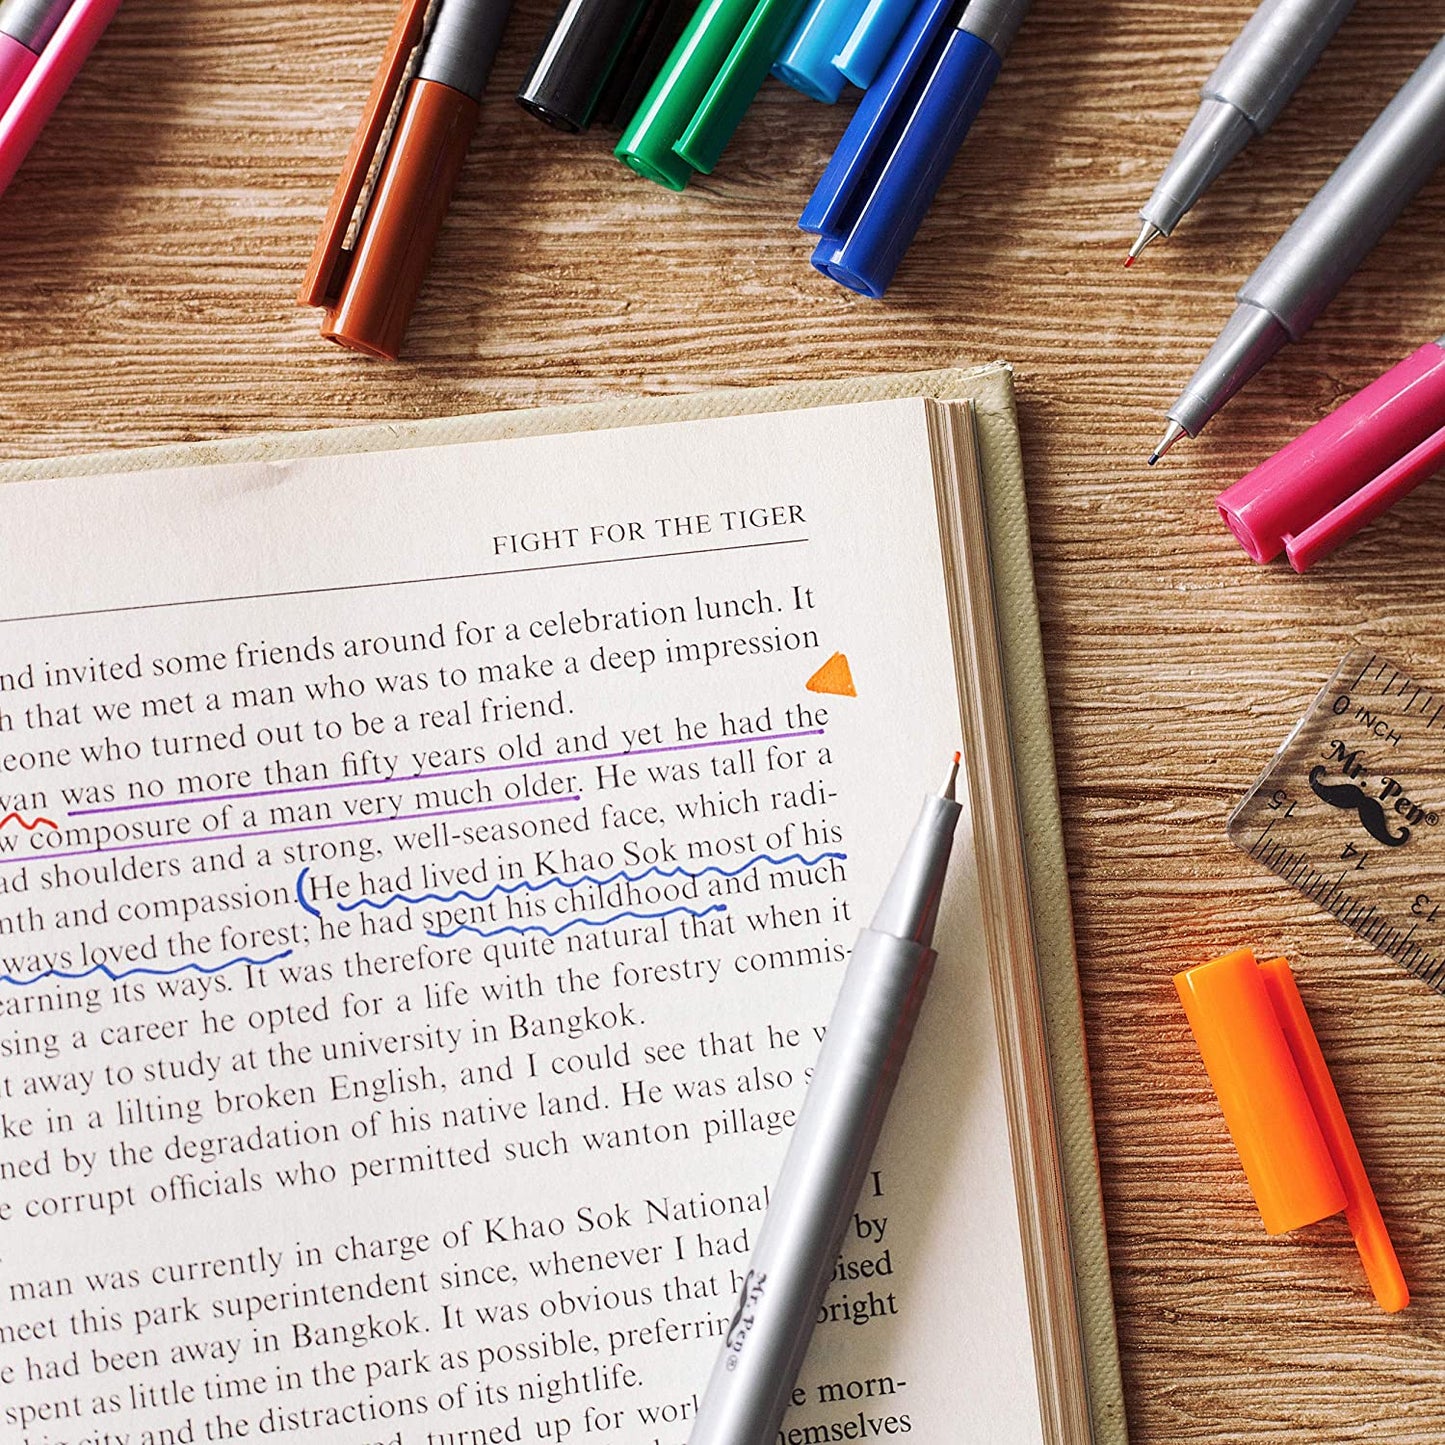 FIGHT FOR THE TIGER
nd invited some friends around for a celebration lunch. It
h that we met a man who was to make a deep impression
eone who turned out to be a real friend.
van was no more than fifty years old and yet he had the
w composure of a man very much older. He was tall for a
ad shoulders and a strong, well-seasoned face, which radi-
nth and compassion. He had lived in Khao Sok most of his
ways loved the forest; he had spent his childhood and much
earning its ways. It was therefore quite natural that when it
sing a career he opted for a life with the forestry commis-
t away to study at the university in Bangkok.
ke in a lilting broken English, and I could see that he w
ned by the degradation of his native land. He was also s
e corrupt officials who permitted such wanton pillage
man was currently in charge of Khao Sok National I
meet this park superintendent since, whenever I had by
e had been away in Bangkok. It was obvious that h oised
spent as little time in the park as possible, preferrin bright
big city and the distractions of its nightlife.
ed, turned up for work e morn-
hemselves
Mr. Pen®
0 INCH
Mr. Pen®
15
14
13